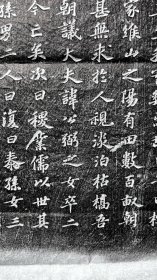 家維山之陽有田數百畝朝
甚無求於人視淡泊枯槁吾
朝議大夫諱公弼之女卒二
今亡矣次曰稷業儒以世其
孫男二人曰復曰泰孫女三